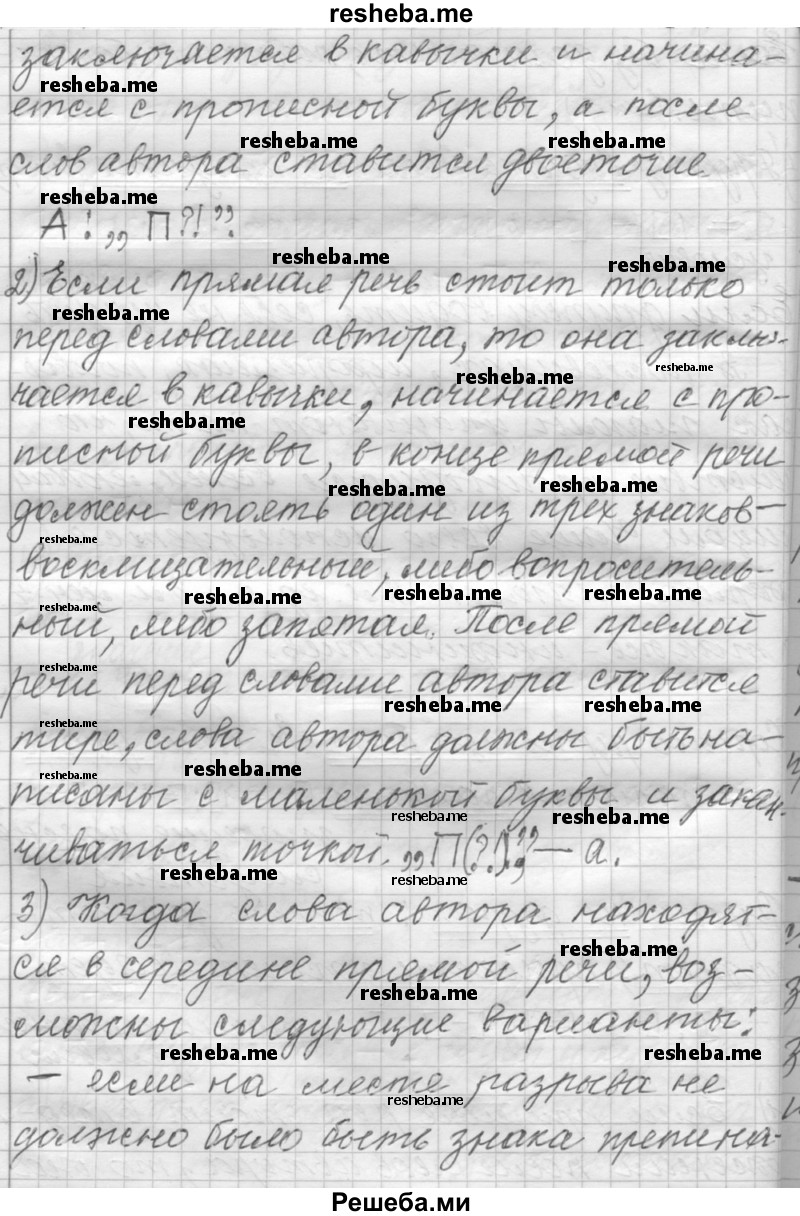 resheba.me
заключается в кавычки и начина-
ется с прописной буквы, а после
слов автора ставится двоеточие
А: „П?!”.
2) Если прямая речь стоит только
перед словами автора, то она заклю-
чается в кавычки, начинается с про-
писной буквы, в конце прямой речи
должен стоять один из трех знаков-
восклицательный, либо вопроситель-
ный, либо запятая. После прямой
речи перед словами автора ставится
тире, слова автора должны быть на-
писаны с маленькой буквы и закан-
чиваться точкой. „П(?!)”, — а.
3) Когда слова автора находят-
ся в середине прямой речи, воз-
можны следующие варианты:
— если на месте разрыва не
должно было быть знака препина-
Решеба.ми